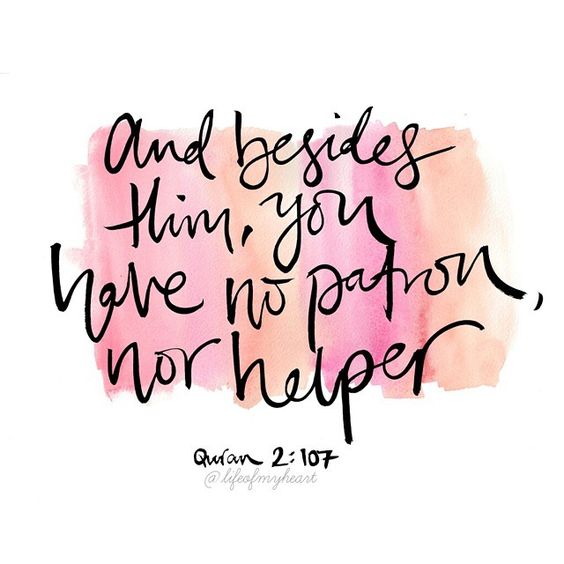 And besides
Him, you
have no patron,
nor helper
Quran 2:107
@lifeofmyheart